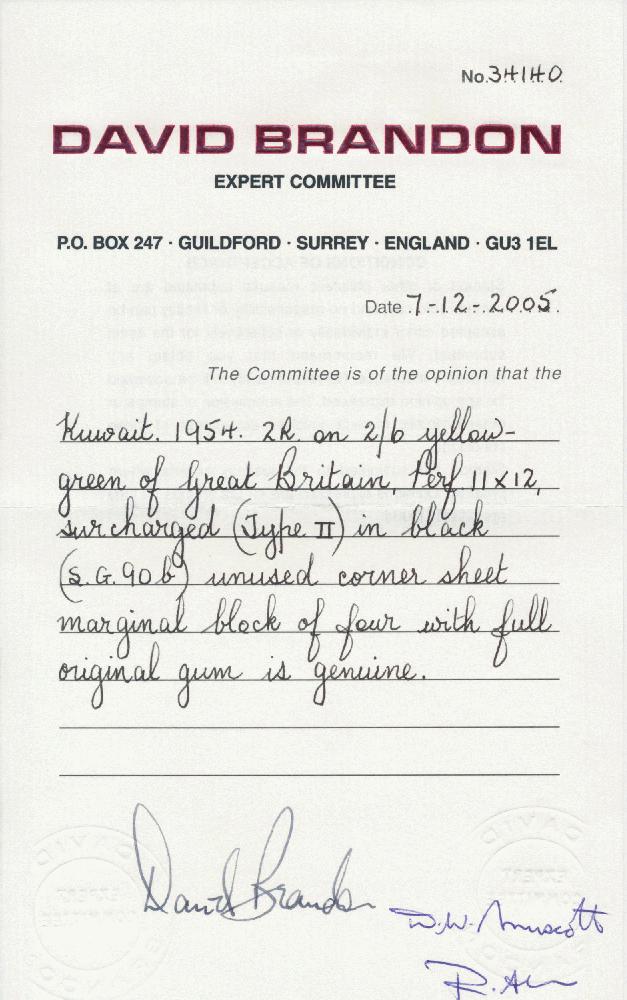 No. 34140
DAVID BRANDON
EXPERT COMMITTEE
P.O. BOX 247 · GUILDFORD · SURREY · ENGLAND · GU3 1EL
Date 7-12-2005.
The Committee is of the opinion that the
Kuwait. 1954. 2R. on 2/6 yellow-
green of Great Britain, Perf 11x12,
surcharged (Type II) in black
(S.G. 90b) unused corner sheet
marginal block of four with full
original gum is genuine.
David Brandon